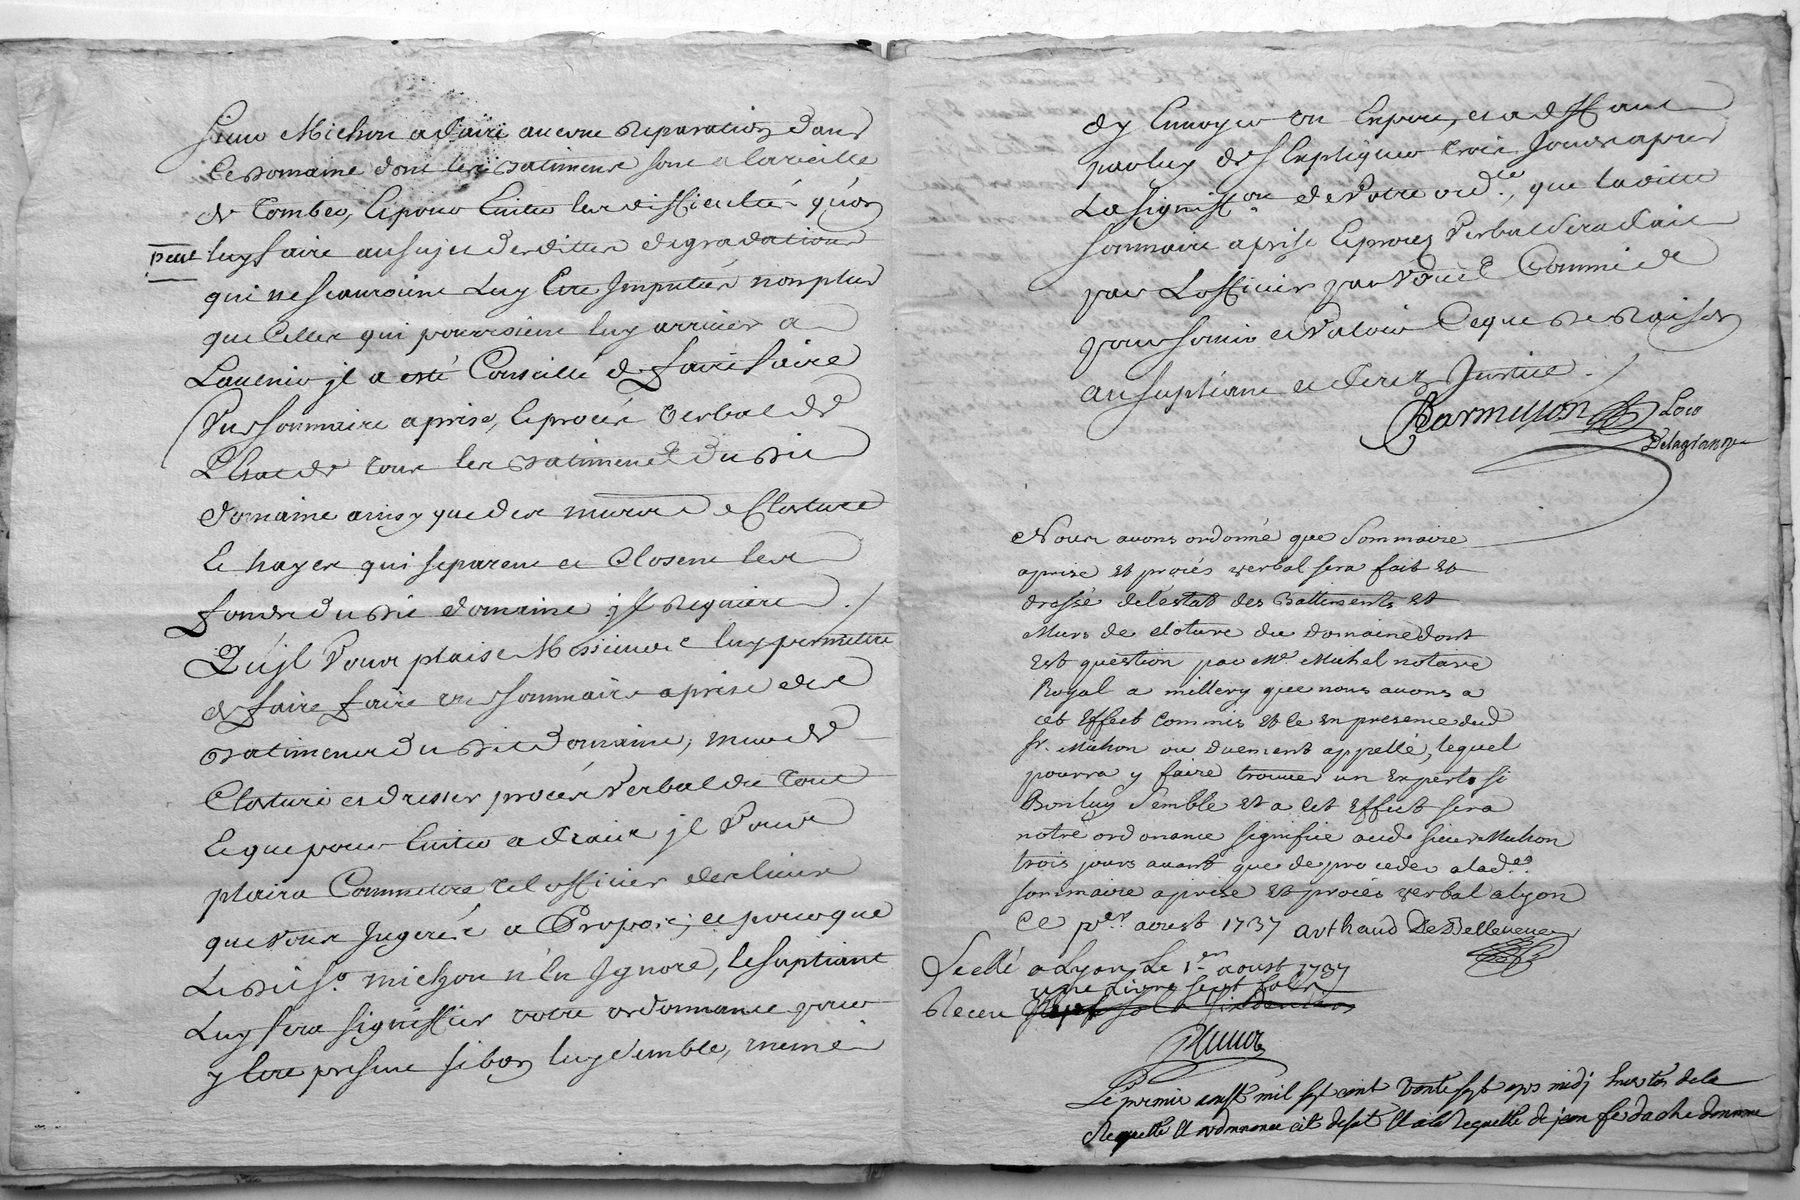 sieur Michon a faire aucune reparation dans
le domaine dont les batiments sont a la veille
de tomber, et pour eviter les difficultés qu'on
peut luy faire au sujet desdittes degradations
qui ne scauroient luy etre Imputées non plus
que celles qui pourroient luy arriver a
L'auenir jl a esté Conseillé de faire faire
Vn sommaire aprise, et procés verbal de
L'Etat de tous les batiments dudit
domaine ainsy que des murs de Clôture
et hayes qui separent et closent les
fonds dudit domaine jl requiere
Qu'jl Vous plaise Messieurs luy permettre
de faire faire vn sommaire aprise des
batiments dudit domaine, murs de
Cloture et dresser procés verbal du tout
et que pour euiter a fraix jl Vous
plaira Commettre tel officier des lieux
que vous Jugerés a Propos; et pour que
Le dit Sr. michon n'en Ignore, le supliant
Luy fera signiffier votre ordonnance pour
y etre present si bon luy semble, meme
d'y Enuoyer vn Expert, et a deffaut
par luy de s'Expliquer trois Jours apres
La signiffon de Votre ordce, que laditte
sommaire aprise et procez Verbal sera fait
par L'officier par Vous Commis
pour seruir et Valoir Ce que de Raison
au supliant et ferez Justice.
Barmesson Loco
Delagrange
Nous auons ordonné que sommaire
aprise et procés verbal sera fait et
dressé de l'estat des Battiments et
Murs de cloture du domaine dont
est question par Me Michel notaire
Royal a millery que nous auons a
cet Effect commis et ce en presence dud
sr. Michon ou duement appellé, lequel
pourra y faire trouuer un Expert si
Bon luy semble et a cet Effect sera
notre ordonance signifiée aud. sieur Michon
trois jours auant que de proceder a lade.
sommaire aprise et procés verbal a lyon
Ce per. aoust 1737 Arthaud De Belleueue
Scellé a Lyon Le 1er aoust 1737
Receu une liure sept sols
Le premier aoust mil sept cent trente sept apres midj
Requette et ordonnance a la Requette de jean